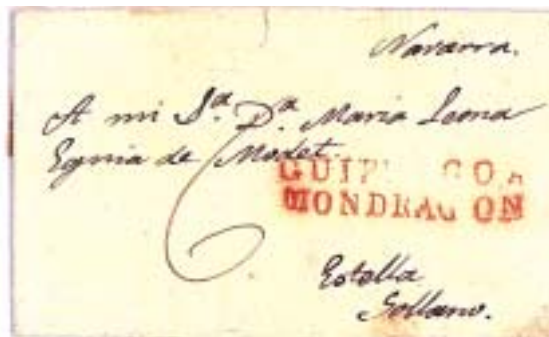 Navarra.
A mi S.ª D.ª Maria Leona
Eguia de Modet.
6
GUIP COA
MONDRAGON
Estella
Gollano.